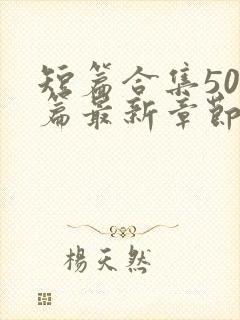 短篇合集50
篇最新章節
楊天然